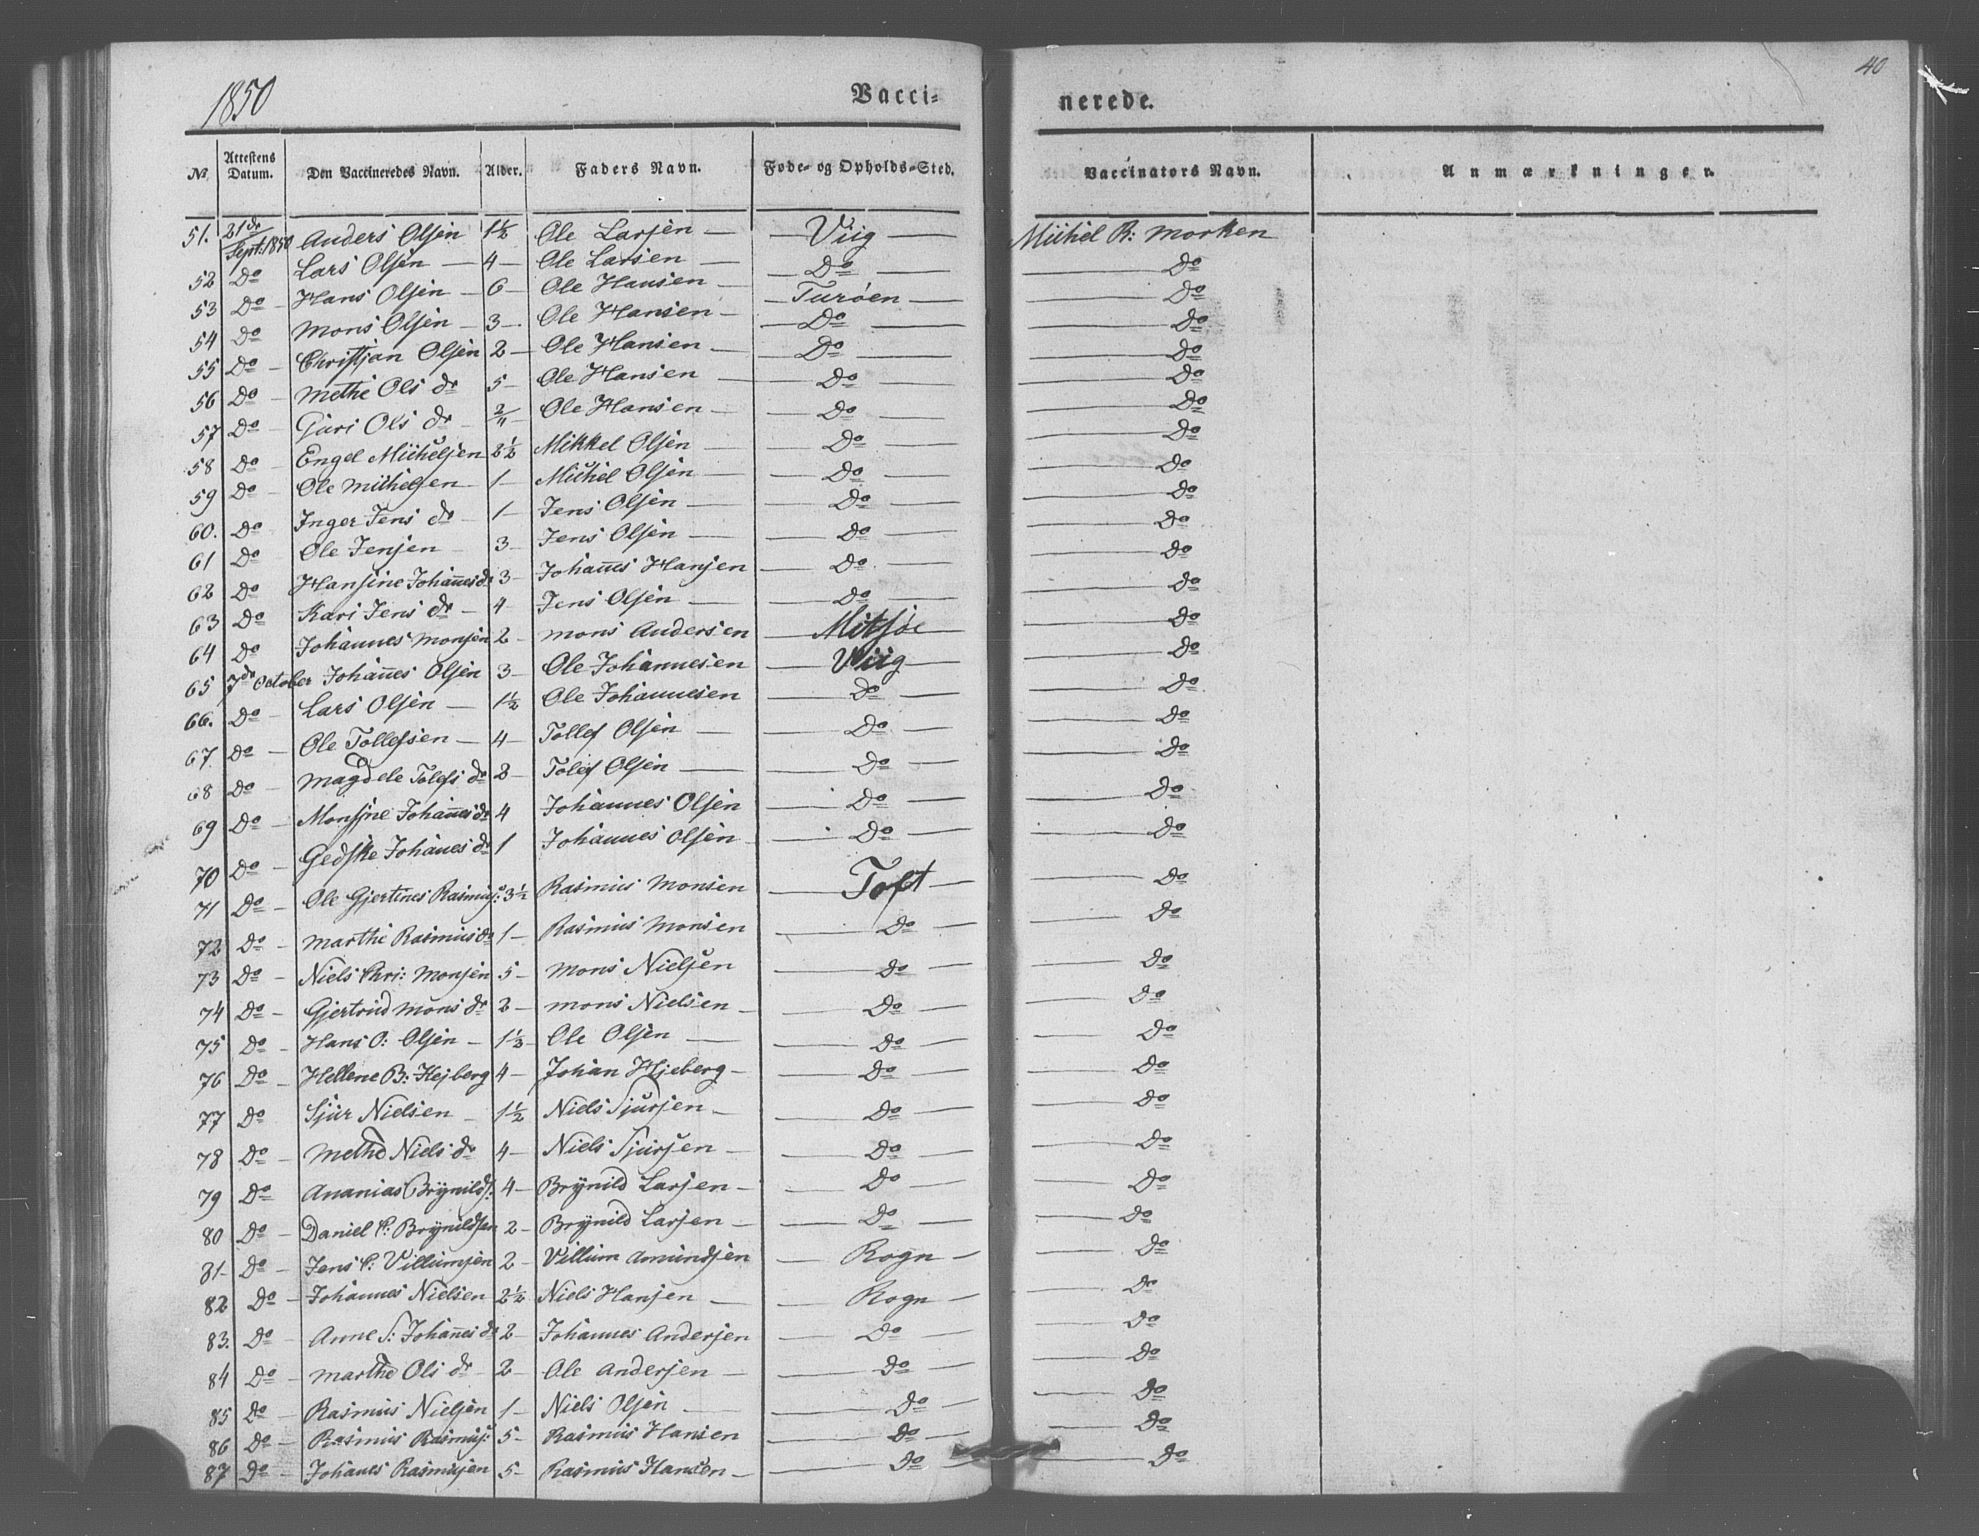 1850
Vacci-
nerede.
40
No
Attestens Datum.
Den Vaccineredes Navn.
Alder.
Faders Navn.
Føde- og Opholds-Sted.
Vaccinators Navn.
Anmærkninger.
51. 21de Sept: 1850 Anders Olsen 1½ Ole Larsen — Viig — Michel R: Morken
52 Do Lars Olsen — 4 — Ole Larsen — Do — Do
53 Do — Hans Olsen — 6 — Ole Hansen — Turöen — Do
54 Do Mons Olsen — 3 — Ole Hansen — Do — Do
55 Do — Christjan Olsen 2 — Ole Hansen — Do — Do
56 Do — Methe Ols dr 5 — Ole Hansen — Do — Do
57 Do — Guri Ols dr 2/11 Ole Hansen — Do — Do
58 Do — Engel Michelsen 2½ Mikkel Olsen — Do — Do
59 Do — Ole Michelsen 1 — Michel Olsen — Do — Do
60. Do — Inger Jens dr — 1 — Jens Olsen — Do — Do
61 Do — Ole Jensen 3 — Jens Olsen — Do — Do
62 Do Hansine Johannesdr 3 — Johannes Hansen — Do — Do
63 Do Kari Jens dr — 4 Jens Olsen — Do — Do
64 Do Johannes Monsen 2 — Mons Andersen — Mitsöe — Do
65 7de October Johannes Olsen 3 — Ole Johannesen — Viig — Do
66. Do — Lars Olsen — 1½ Ole Johannesen — Do — Do
67 Do — Ole Tollefsen — 4 — Tollef Olsen — Do — Do
68 Do — Magdele Tolefs dr 8 — Tolef Olsen — Do — Do
69 Do — Monsine Johannesdr 4 Johannes Olsen — Do — Do
70 Do — Gedske Johanes dr 1 Johannes Olsen — Do — Do
71 Do — Ole Gjertines Rasmus: 3½ Rasmus Monsen — Toft — Do
72 Do — Marthe Rasmusdr 1 — Rasmus Monsen — Do — Do
73 Do — Niels Chri: Monsen 5 — Mons Nielsen — Do — Do
74 Do — Gjertrud Mons dr 2 — Mons Nielsen — Do — Do
75 Do — Hans O: Olsen — 1½ — Ole Olsen — Do — Do
76 Do — Hellene B: Hejberg 4 — Johan Hjeberg — Do — Do
77 Do Sjur Nielsen — 1½ Niels Sjursen — Do — Do
78 Do — Methe Niels dr 4 — Niels Sjursen — Do — Do
79 Do — Ananias Brynilds: 4 — Brynild Larsen — Do — Do
80 Do — Daniel C: Brynildsen 2 — Brynild Larsen — Do — Do
81 — Do — Jens C: Villumsen 2 — Villum Amundsen — Rogn — Do
82 Do — Johannes Nielsen 2½ Niels Hansen — Rogn — Do
83. Do — Anne S: Johannes dr 2 — Johannes Andersen — Do — Do
84 Do — Marthe Ols dr 2 — Ole Andersen — Do — Do
85 Do — Rasmus Nielsen 1 — Niels Olsen — Do — Do
86 Do — Rasmus Rasmus: 5 — Rasmus Hansen — Do — Do
87 Do — Johanes Rasmusen 5 — Rasmus Hansen — Do — Do